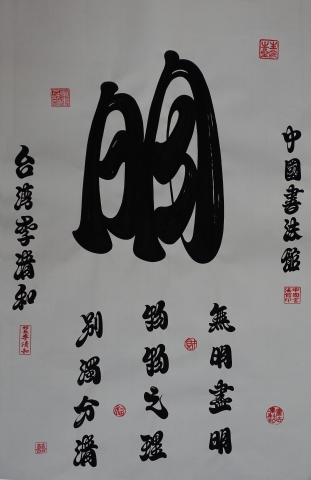 中國書法館
明
無明盡明
物物之理
別濁分清
台湾李清和